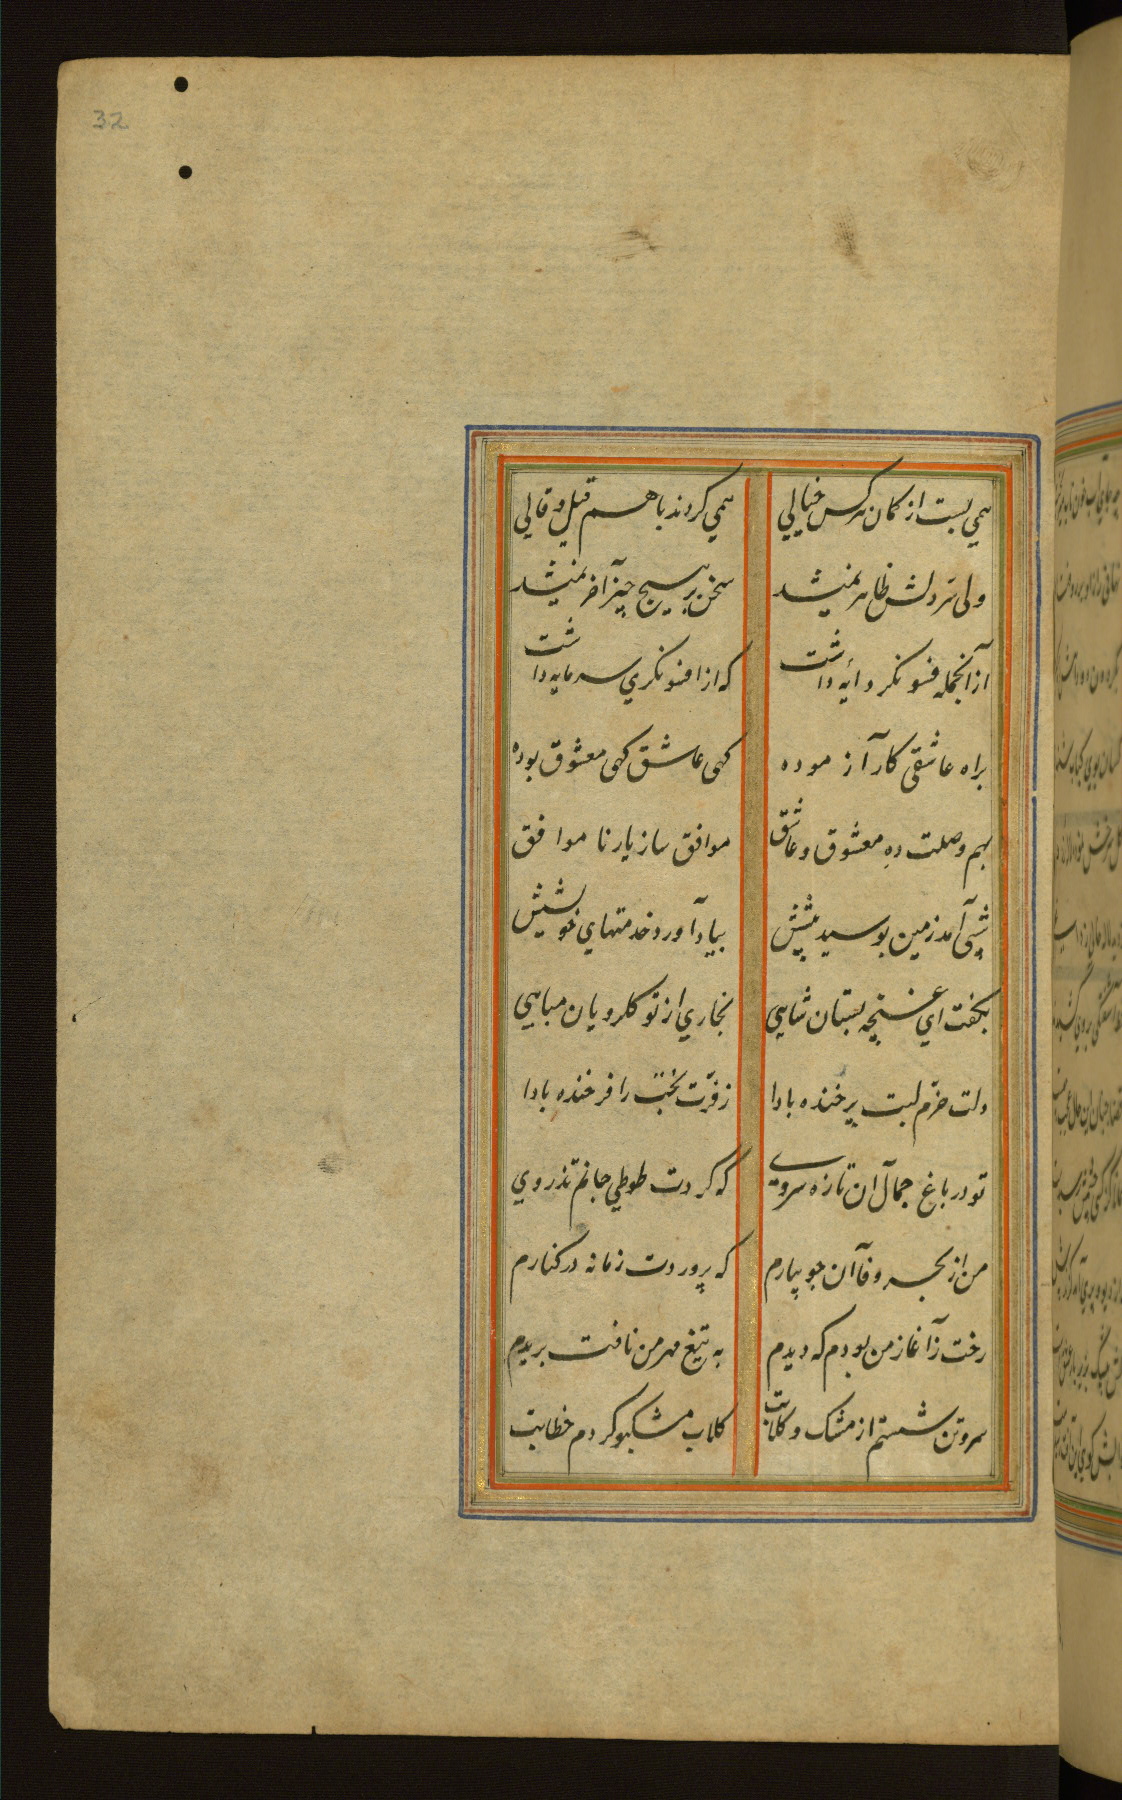 32
همي بست از کمان هرکس خيالي همي کردند با هم قيل و قالي
ولي سر دلش ظاهر نميشد سخن بر هيچ چيز آخر نميشد
از آنجمله فسونکر دايه داشت که از افسونکري سرمايه داشت
براه عاشقي کار آزموده کهي عاشق کهي معشوق بوده
بهم وصلت ده معشوق و عاشق موافق ساز يار ناموافق
شبي آمد زمين بوسيد پيشش بياد آورد خدمتهاي خويشش
بکفت اي غنچه بستان شاهي بخاري از تو کلرويان مباهي
دلت خرم لبت پر خنده بادا ز فرت بخت را فرخنده بادا
تو در باغ جمال آن تازه سروي که کردت طوطي جانم تذروي
من از بحر وفا آن جويبارم که پروردت زمانه در کنارم
رخت ز آغاز من بودم که ديدم به تيغ مهر من نافت بريدم
سر و تن شستم از مشک و کلابت کلاب مشکبو کردم خطابت